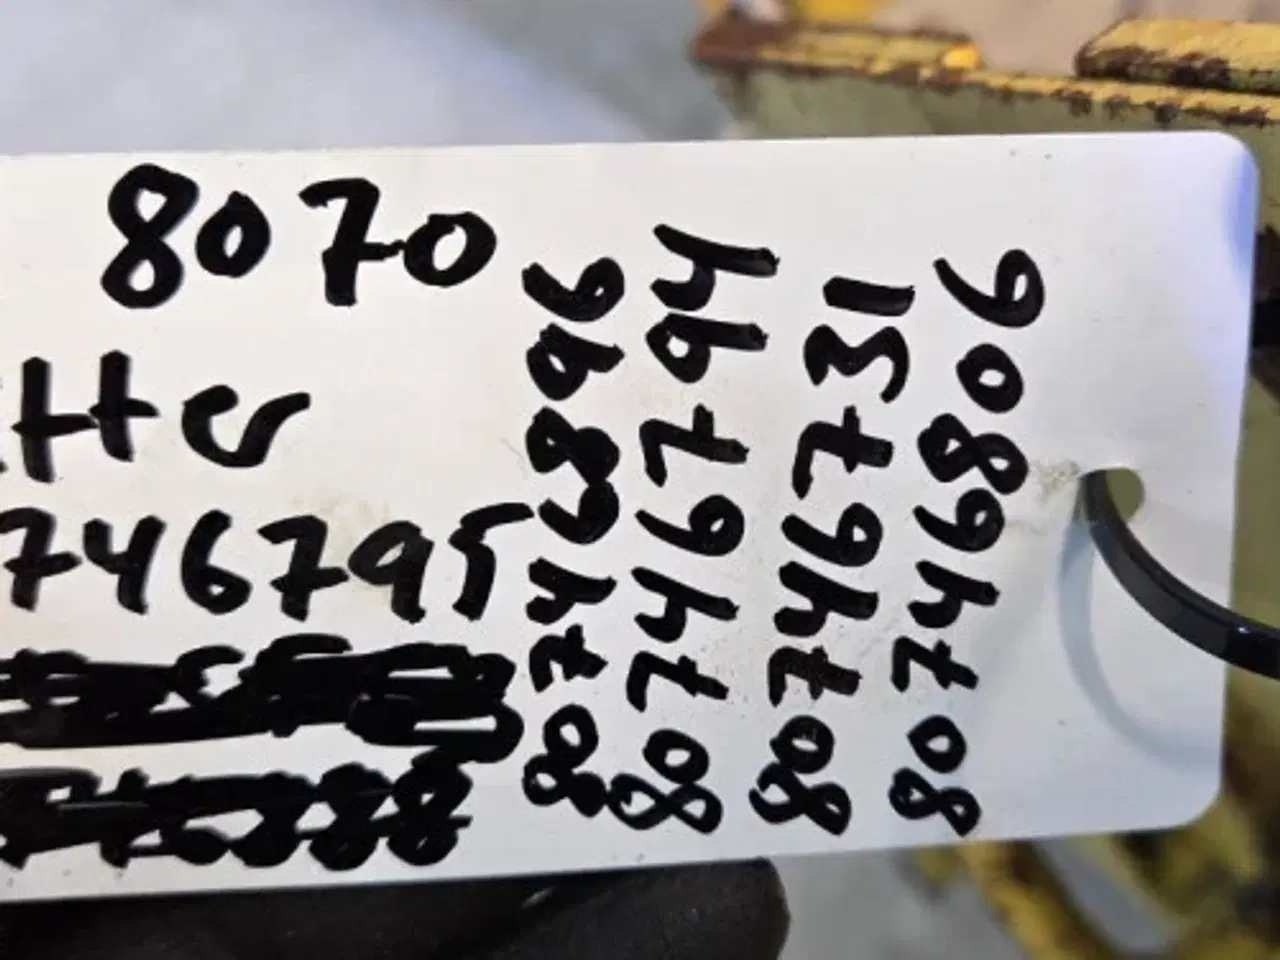 8070
tter
746795
80746896
80746794
80746731
80746806